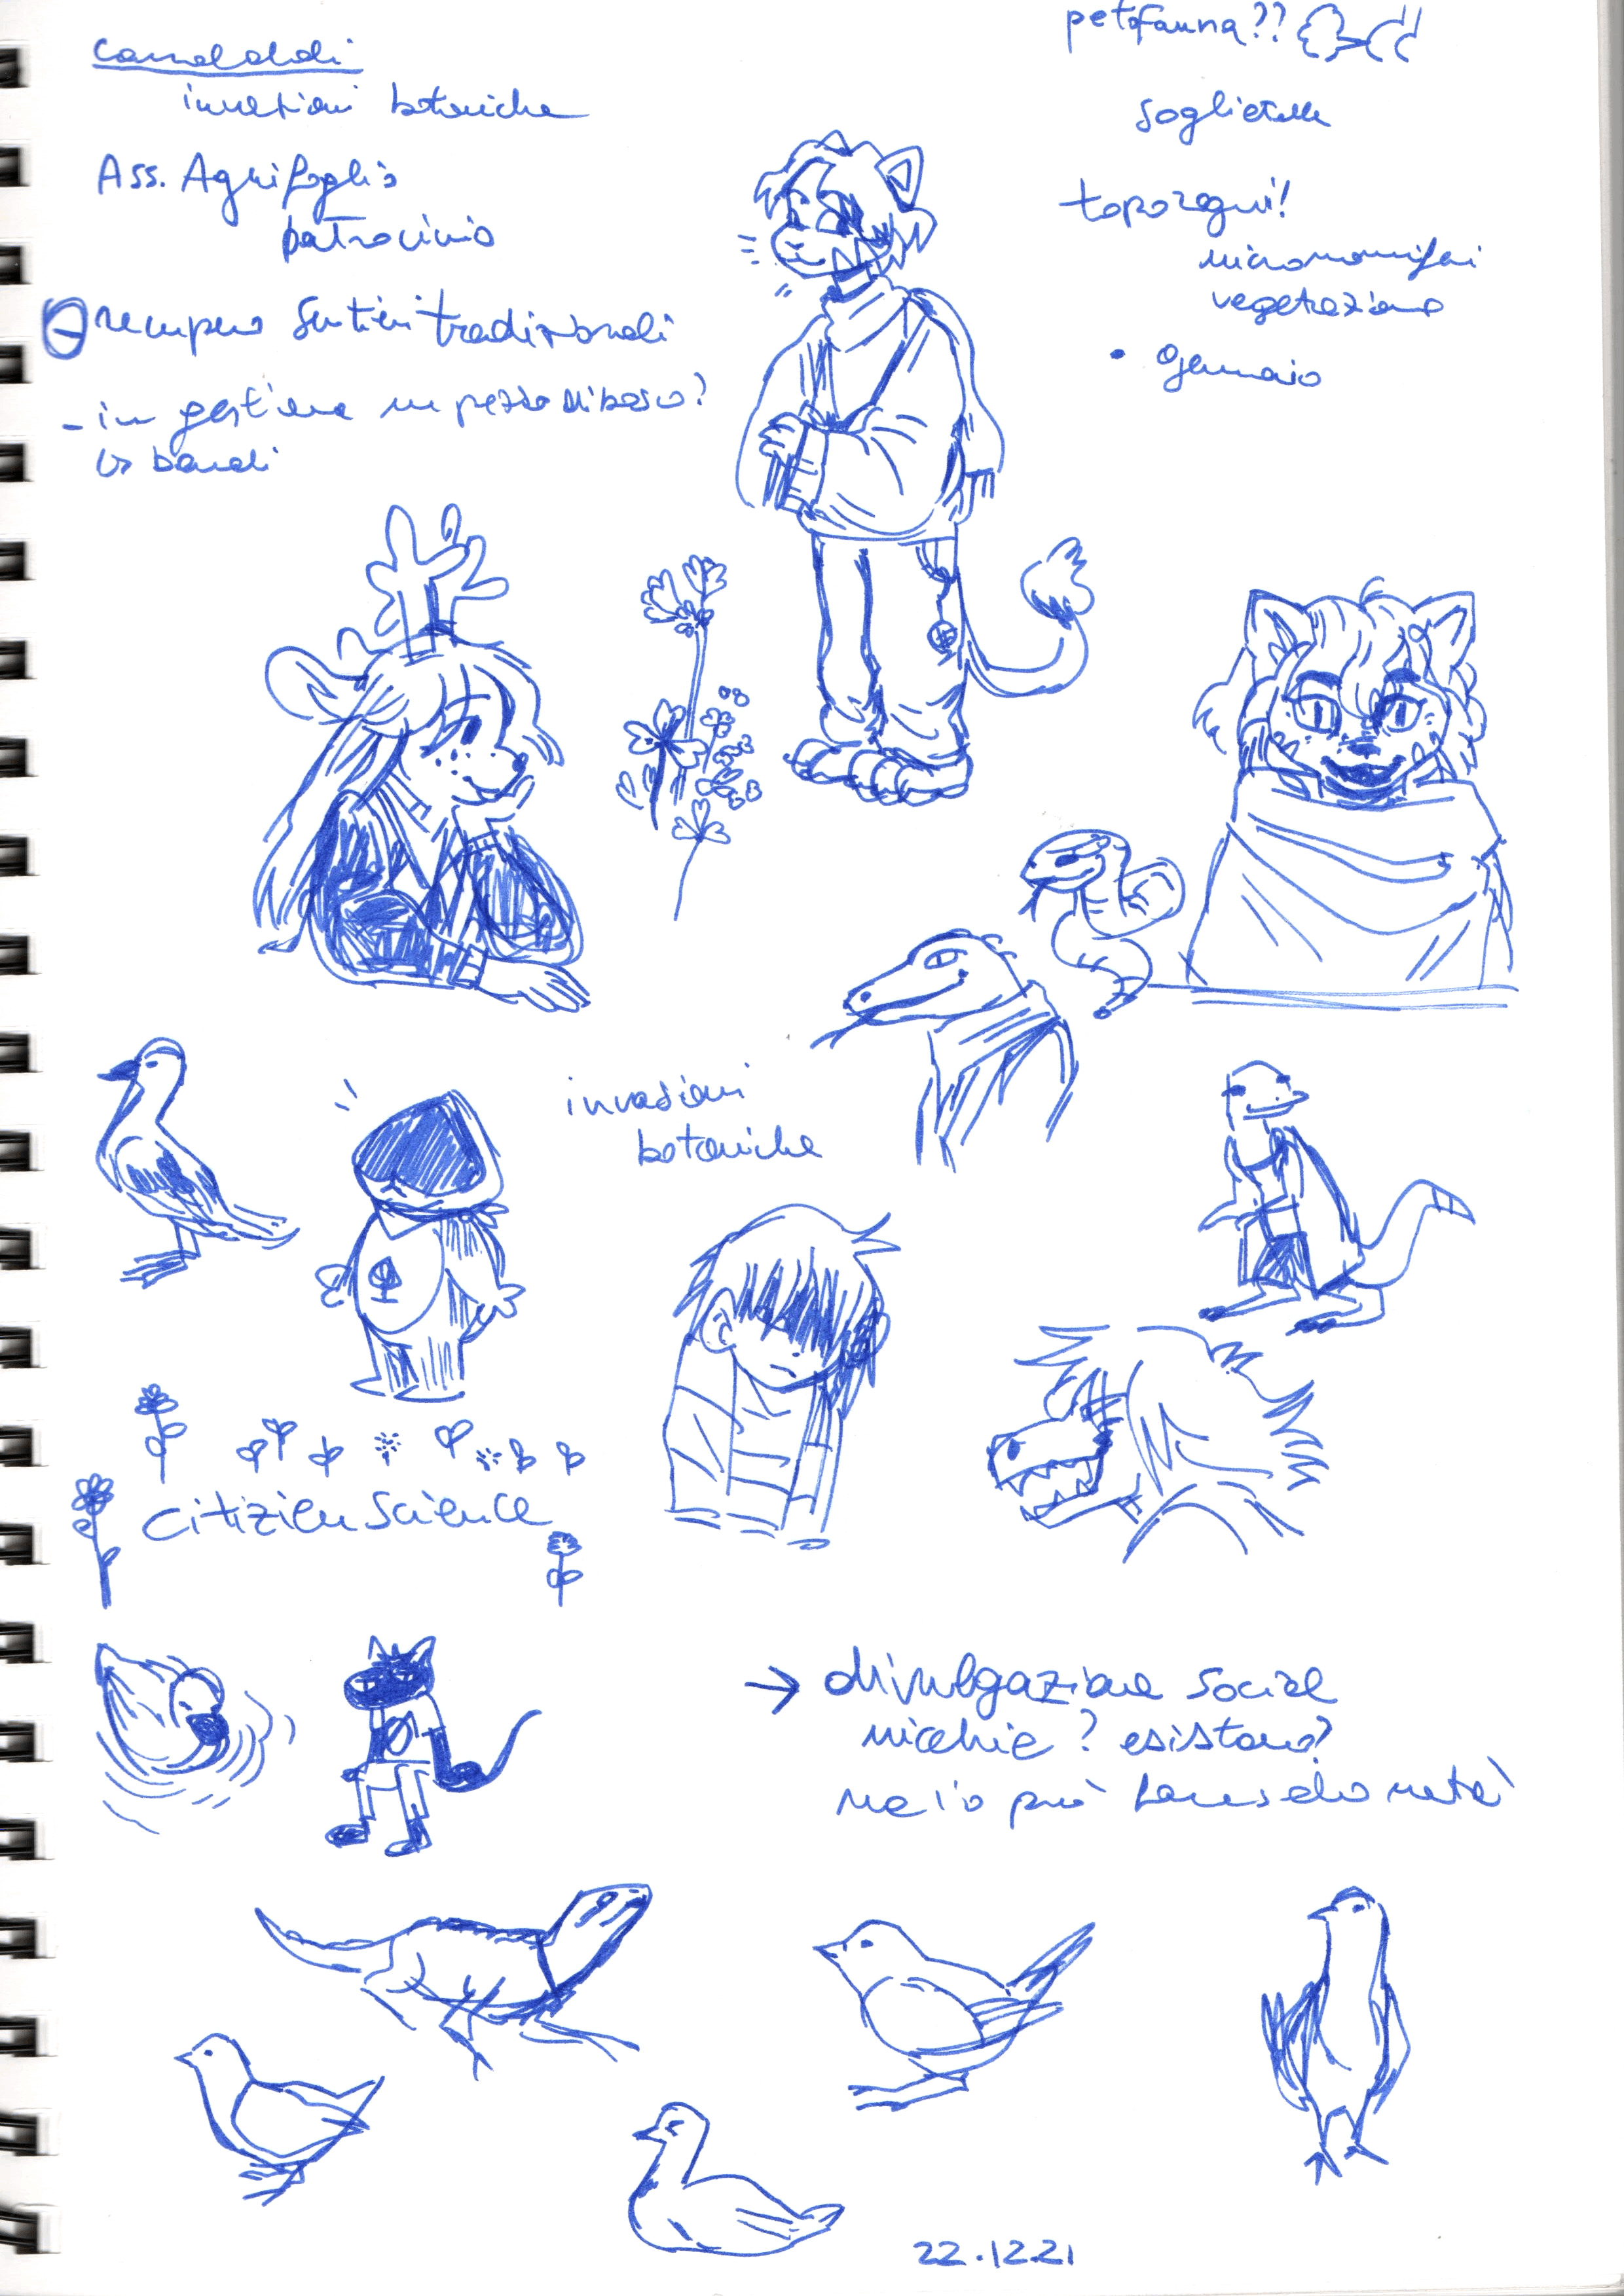 invasioni botaniche
Ass. Agrifoglio
patrocinio
recupero sentieri tradizionali
- in gestione un pezzo di bosco?
↳ bandi
petofauna??
sogliettelle
toporagni!
micromammiferi
vegetazione
• Gennaio
invasioni
botaniche
Citizien Science
→ divulgazione social
nicchie? esistono?
22.12.21